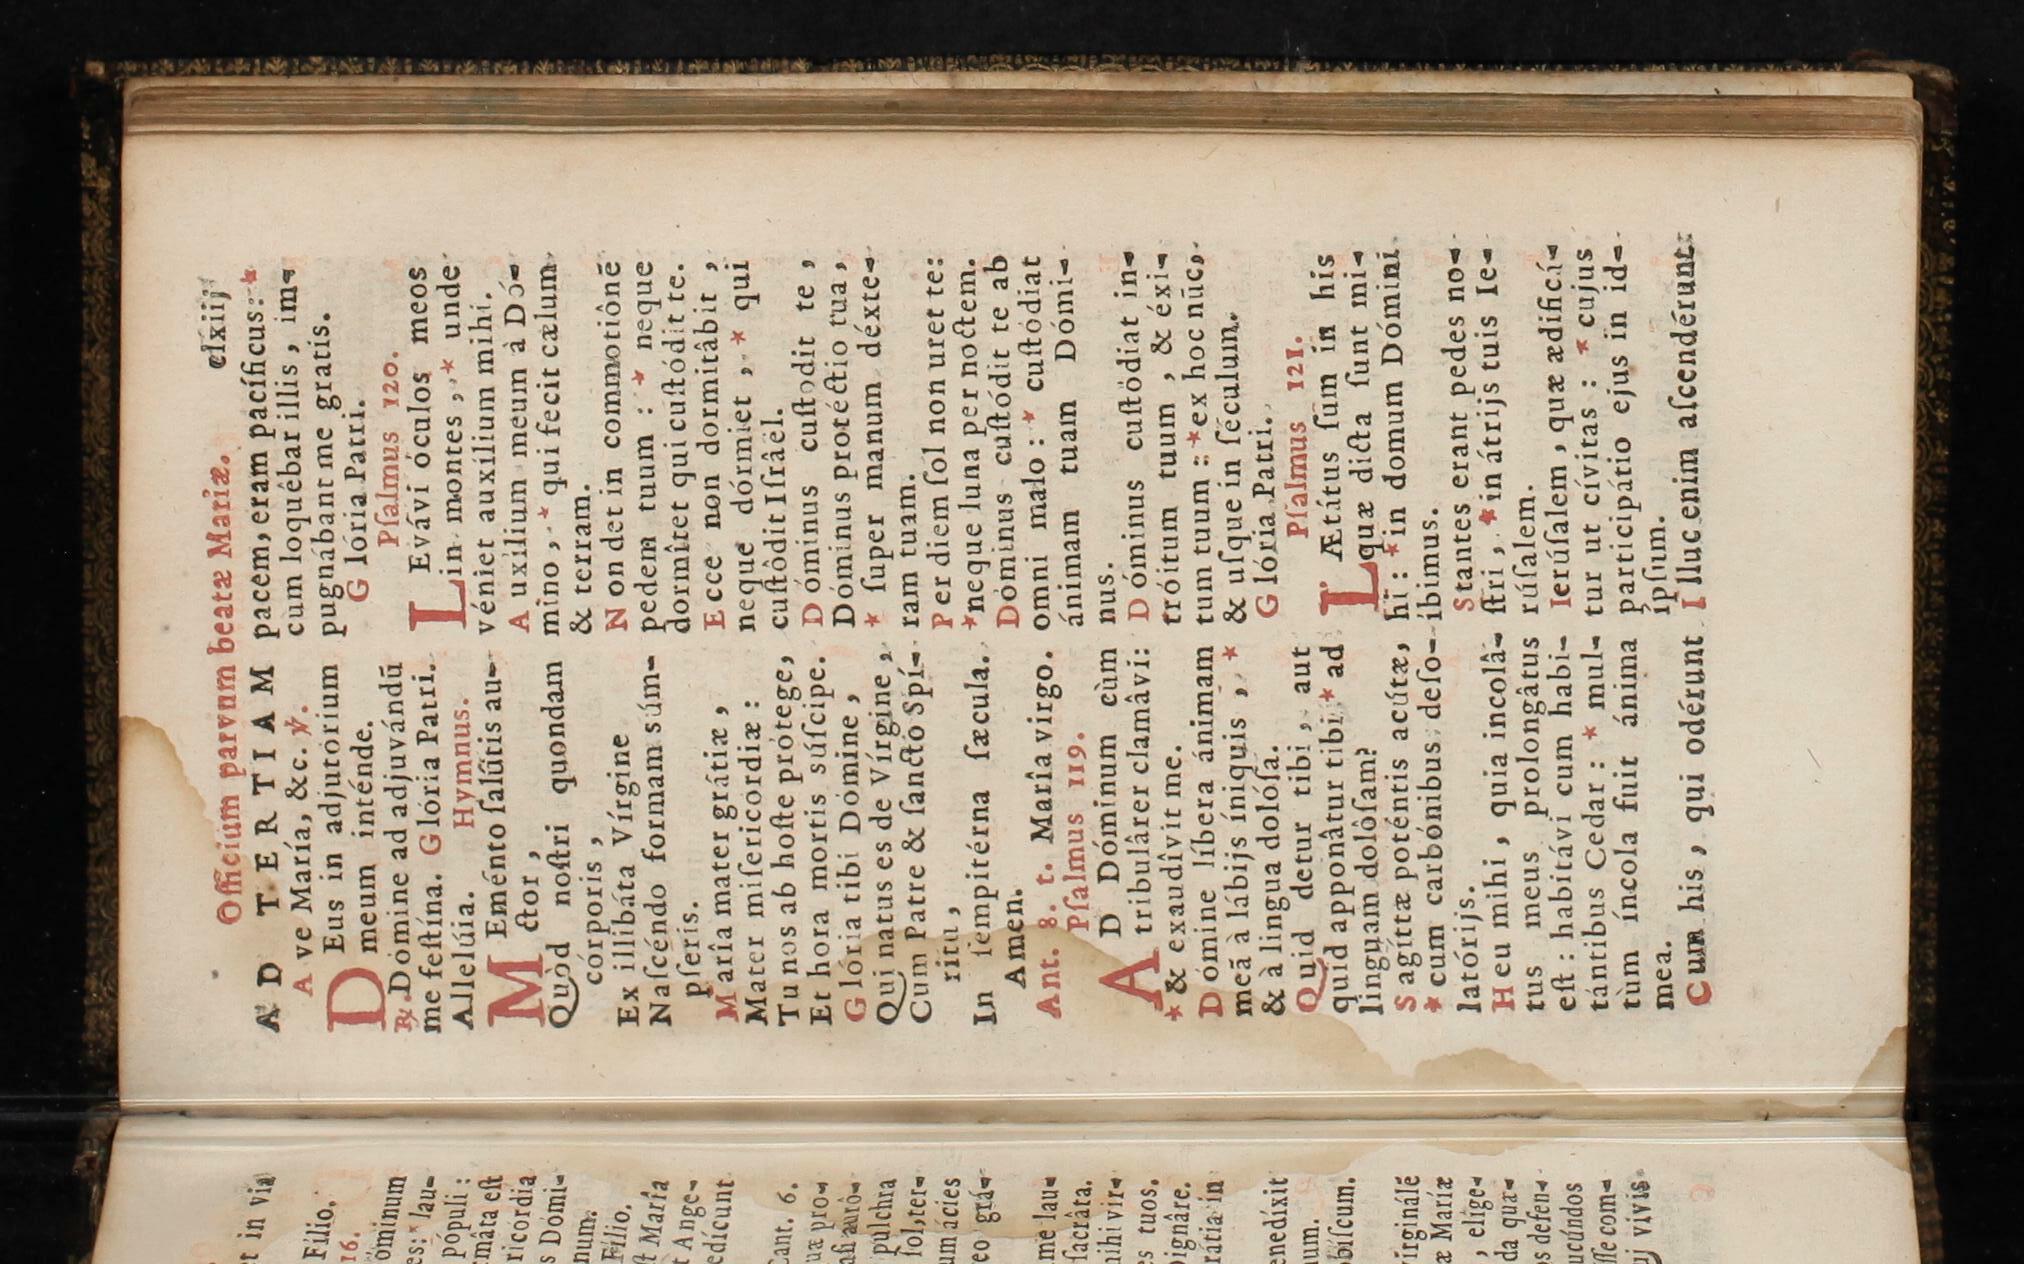 Officium parvum beatæ Mariæ. clxiij
AD TERTIAM
A ve María, &c. ℣.
D Eus in adjutórium
meum inténde.
℞. Dómine ad adjuvándũ
me festína. G lória Patri.
Allelúia. Hymnus.
M Eménto salũtis au-
ctor,
Quòd nostri quondam
córporis,
Ex illibáta Vírgine
Nascéndo formam súm-
pseris.
M aría mater grátiæ,
Mater misericordiæ:
Tu nos ab hoste prótege,
Et hora mortis súscipe.
G lória tibi Dómine,
Qui natus es de Vírgine,
Cum Patre & sancto Spí-
ritu,
In sempitérna sæcula.
Amen.
Ant. 8. t. María virgo.
Psalmus 119.
A D Dóminum cùm
tribulârer clamâvi:
* & exaudîvit me.
D ómine líbera ánimam
meã à lábijs íniquis, *
& à lingua dolósa.
Quid detur tibi, aut
quid apponâtur tibi * ad
linguam dolôsam?
S agíttæ poténtis acútæ,
* cum carbónibus deso-
latórijs.
H eu mihi, quia incolâ-
tus meus prolongâtus
est: habitávi cum habi-
tántibus Cedar: * mul-
tùm íncola fuit ánima
mea.
Cum his, qui odérunt
pacem, eram pacíficus: *
cum loquêbar illis, im-
pugnábant me gratis.
G lória Patri.
Psalmus 120.
L Evávi óculos meos
in montes, * unde
véniet auxílium mihi.
A uxílium meum à Dó-
mino, * qui fecit cælum
& terram.
N on det in commotiônẽ
pedem tuum: * neque
dormîtet qui custódit te.
E cce non dormitâbit,
neque dórmiet, * qui
custôdit Israël.
D óminus custodit te,
Dóminus protéctio tua,
* super manum déxte-
ram tuam.
P er diem sol non uret te:
* neque luna per noctem.
Dóminus custódit te ab
omni malo: * custódiat
ánimam tuam Dómi-
nus.
D óminus custódiat in-
tróitum tuum, & éxi-
tum tuum: * ex hoc nũc,
& usque in séculum.
G lória Patri.
Psalmus 121.
L Ætátus sum in his
quæ dicta sunt mi-
hi: * in domum Dómini
ibimus.
Stantes erant pedes no-
stri, * in átrijs tuis Ie-
rúsalem.
Ierúsalem, quæ ædificá-
tur ut cívitas: * cujus
participátio ejus in id-
ipsum.
I lluc enim ascendérunt
t in via
Filio.
16.
óminum
es: * lau-
pópuli:
mâta est
ricordia
s Dómi-
num.
Filio.
st María
t Ange-
edícunt
Cant. 6.
uæ pro-
pulchra
sol, ter-
um ácies
eo grá-
me lau-
sacrâta.
nihi vir-
es tuos.
Dignâre.
rátia in
enedíxit
num.
obíscum.
virginále
æ Maríæ
, elíge-
da qua-
os defen-
ucúndos
sse com-
uj vivis.